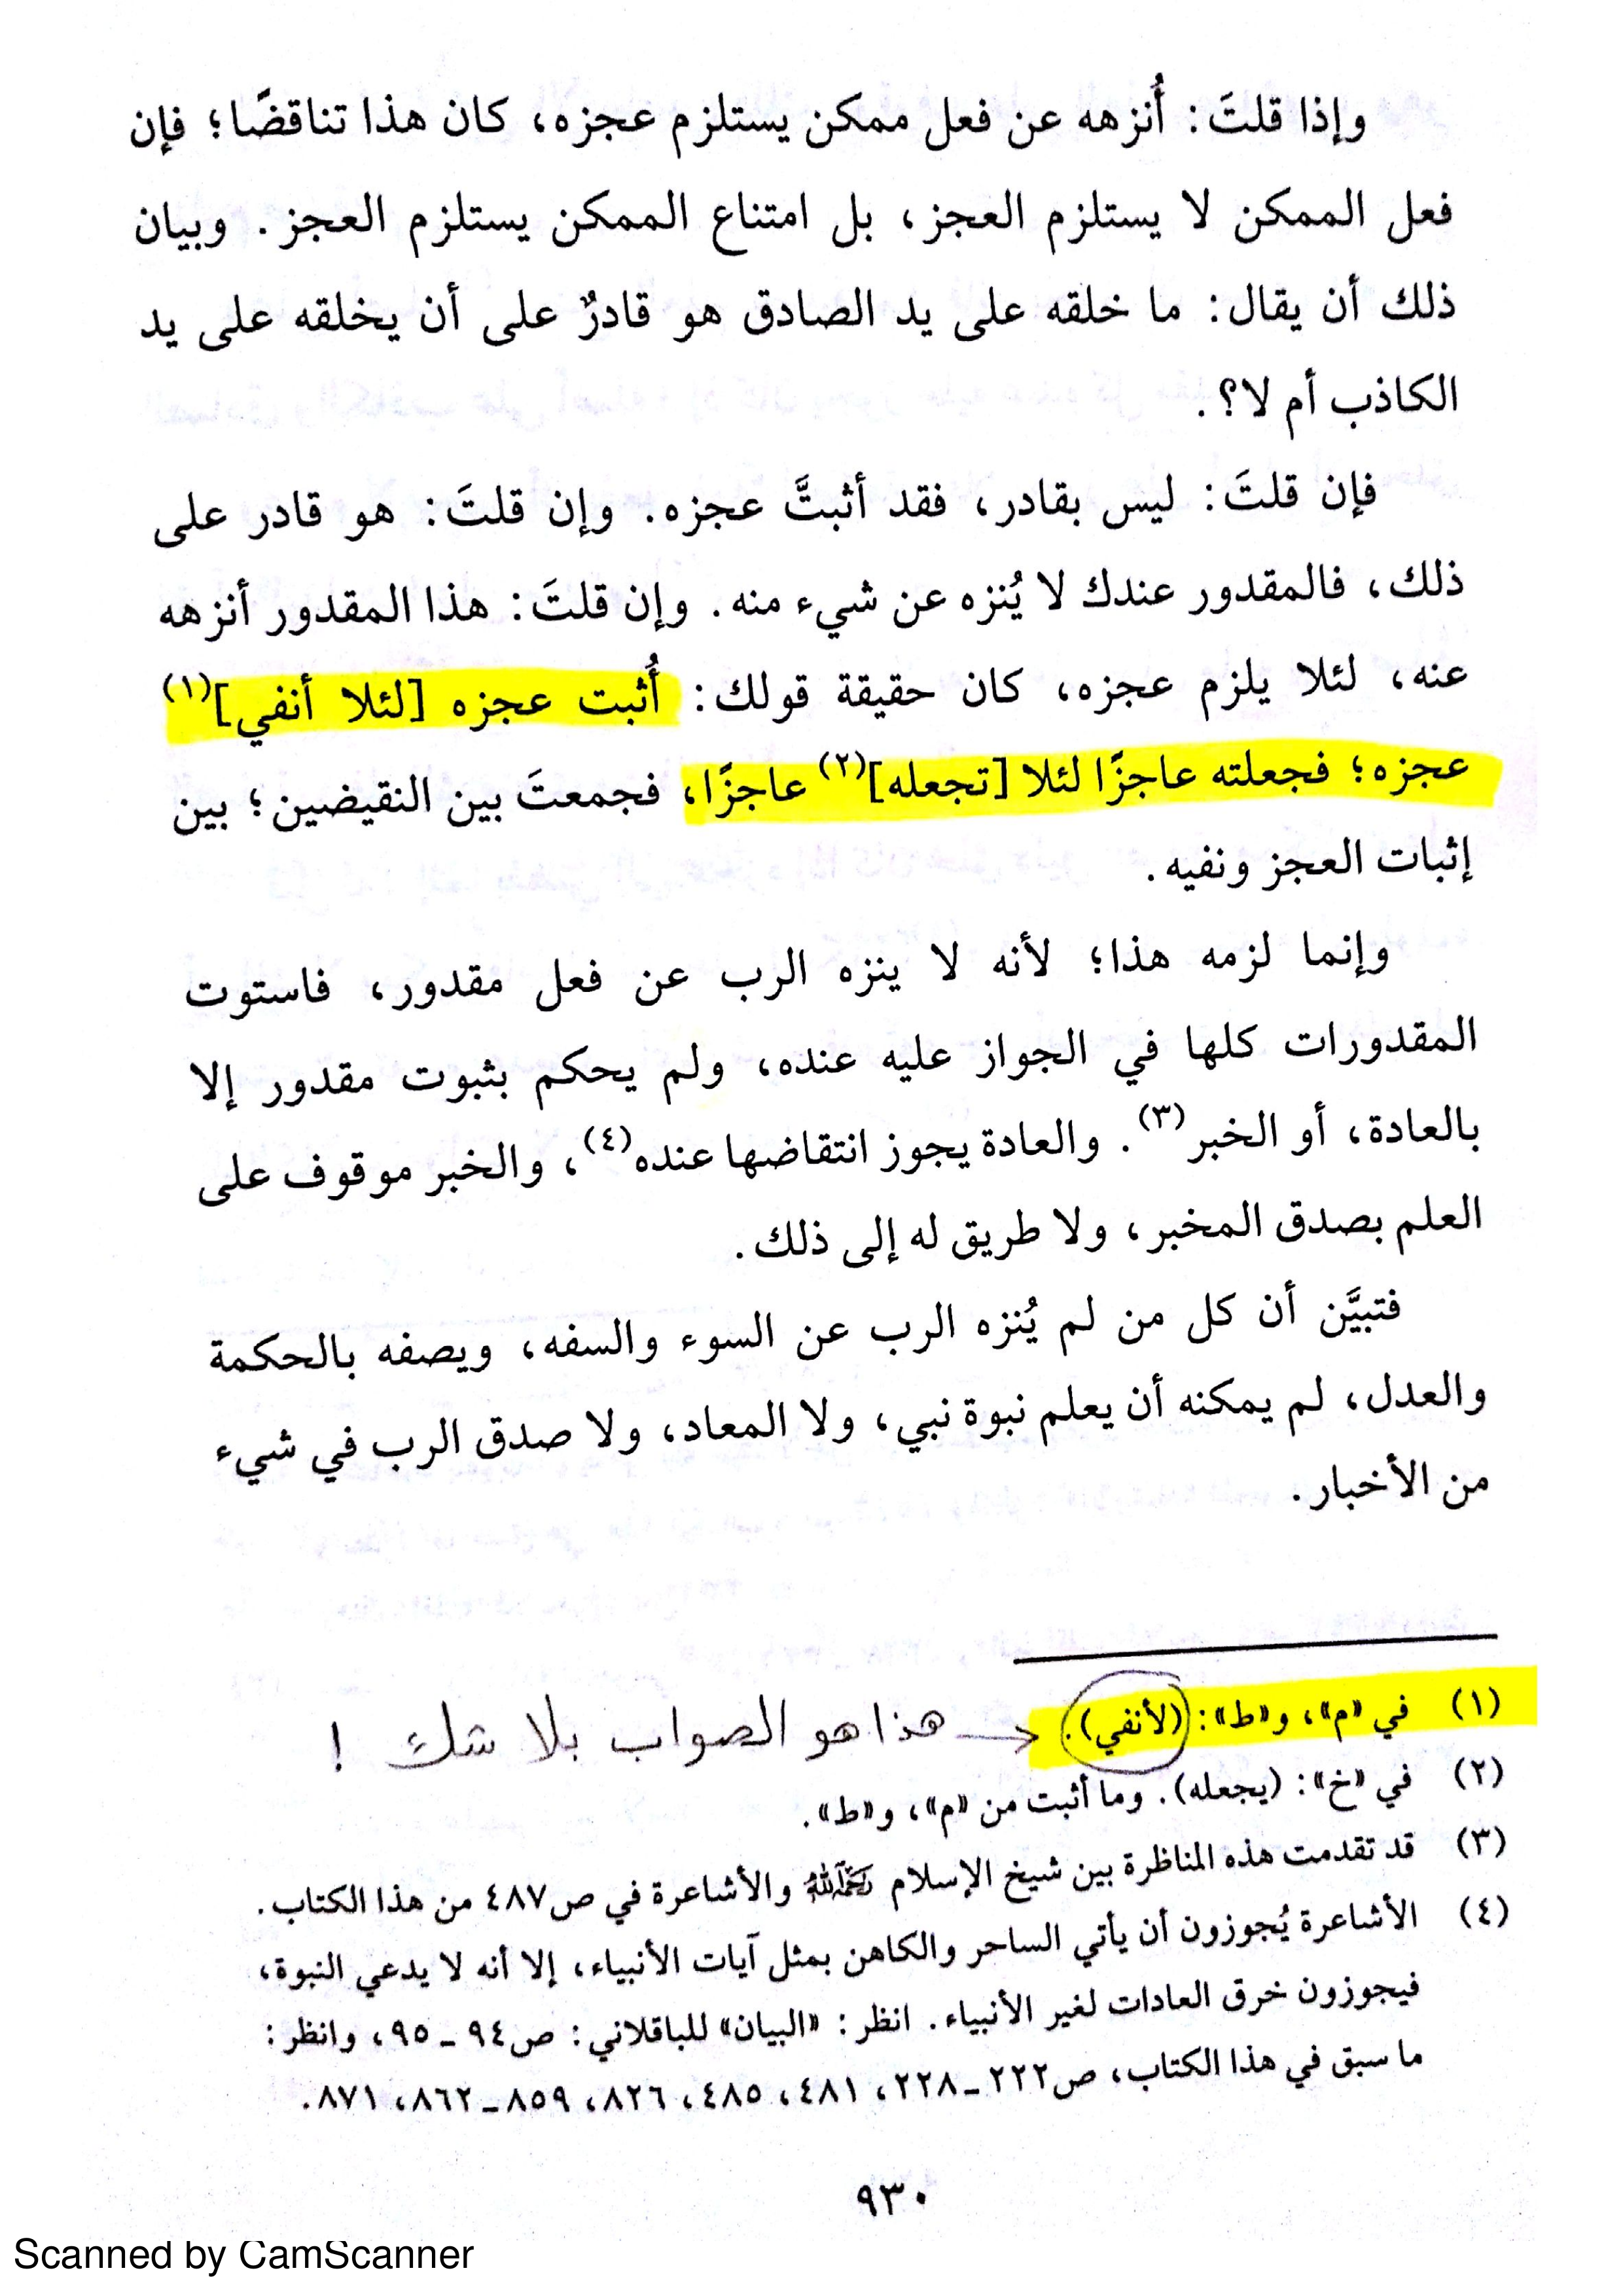 وإذا قلتَ: أُنزهه عن فعل ممكن يستلزم عجزه، كان هذا تناقضًا؛ فإن
فعل الممكن لا يستلزم العجز، بل امتناع الممكن يستلزم العجز. وبيان
ذلك أن يقال: ما خلقه على يد الصادق هو قادرٌ على أن يخلقه على يد
الكاذب أم لا؟.
فإن قلتَ: ليس بقادر، فقد أثبتَّ عجزه. وإن قلتَ: هو قادر على
ذلك، فالمقدور عندك لا يُنزه عن شيء منه. وإن قلتَ: هذا المقدور أنزهه
عنه، لئلا يلزم عجزه، كان حقيقة قولك: أُثبت عجزه [لئلا أنفي](١)
عجزه؛ فجعلته عاجزًا لئلا [تجعله](٢) عاجزًا، فجمعتَ بين النقيضين؛ بين
إثبات العجز ونفيه.
وإنما لزمه هذا؛ لأنه لا ينزه الرب عن فعل مقدور، فاستوت
المقدورات كلها في الجواز عليه عنده، ولم يحكم بثبوت مقدور إلا
بالعادة، أو الخبر(٣). والعادة يجوز انتقاضها عنده(٤)، والخبر موقوف على
العلم بصدق المخبر، ولا طريق له إلى ذلك.
فتبيَّن أن كل من لم يُنزه الرب عن السوء والسفه، ويصفه بالحكمة
والعدل، لم يمكنه أن يعلم نبوة نبي، ولا المعاد، ولا صدق الرب في شيء
من الأخبار.
(١) في «م»، و«ط»: (لأنفي). → هذا هو الصواب بلا شك !
(٢) في «خ»: (يجعله). وما أثبت من «م»، و«ط».
(٣) قد تقدمت هذه المناظرة بين شيخ الإسلام رحمه الله والأشاعرة في ص٤٨٧ من هذا الكتاب.
(٤) الأشاعرة يُجوزون أن يأتي الساحر والكاهن بمثل آيات الأنبياء، إلا أنه لا يدعي النبوة،
فيجوزون خرق العادات لغير الأنبياء. انظر: «البيان» للباقلاني: ص٩٤ ـ ٩٥، وانظر:
ما سبق في هذا الكتاب، ص٢٢٢ ـ ٢٢٨، ٤٨١، ٤٨٥، ٨٢٦، ٨٥٩ ـ ٨٦٢، ٨٧١.
٩٣٠
Scanned by CamScanner